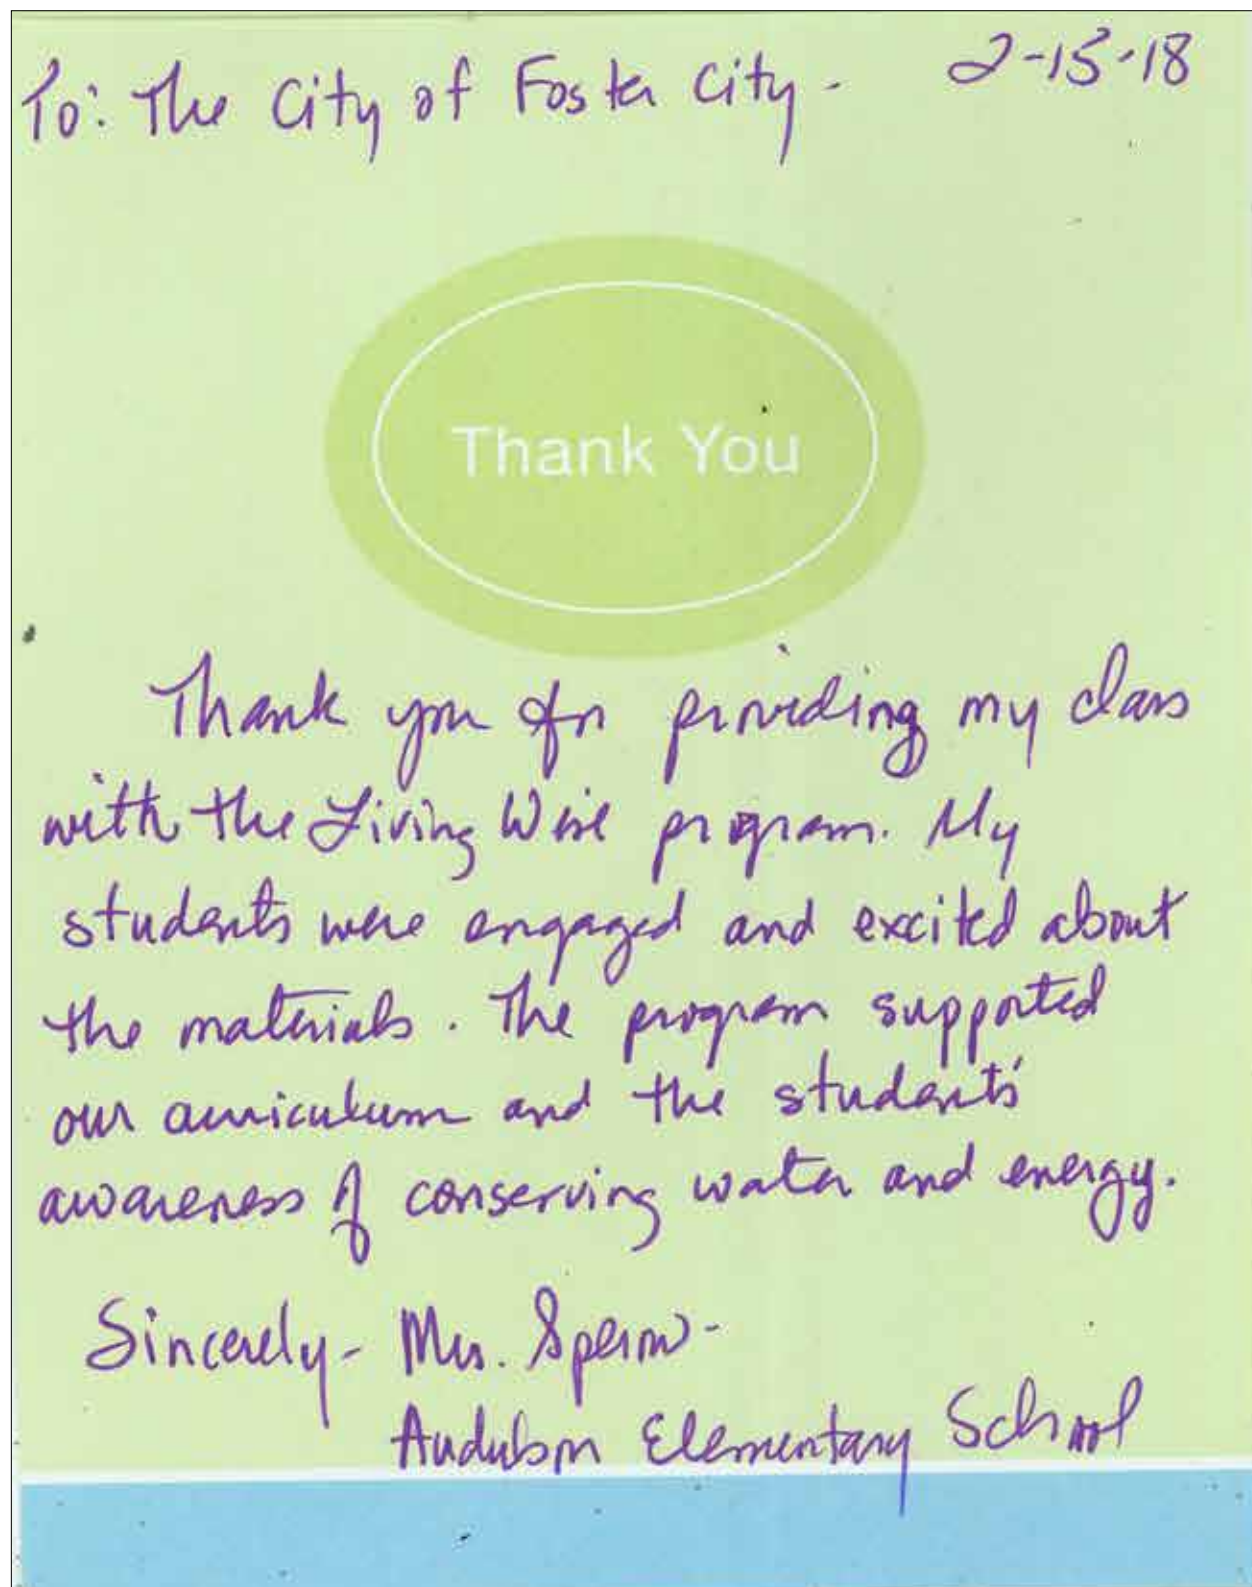 To: The City of Foster City - 2-15-18
Thank You
Thank you for providing my class
with the Living Wise program. My
students were engaged and excited about
the materials. The program supported
our curriculum and the students'
awareness of conserving water and energy.
Sincerely - Mrs.
Audubon Elementary School